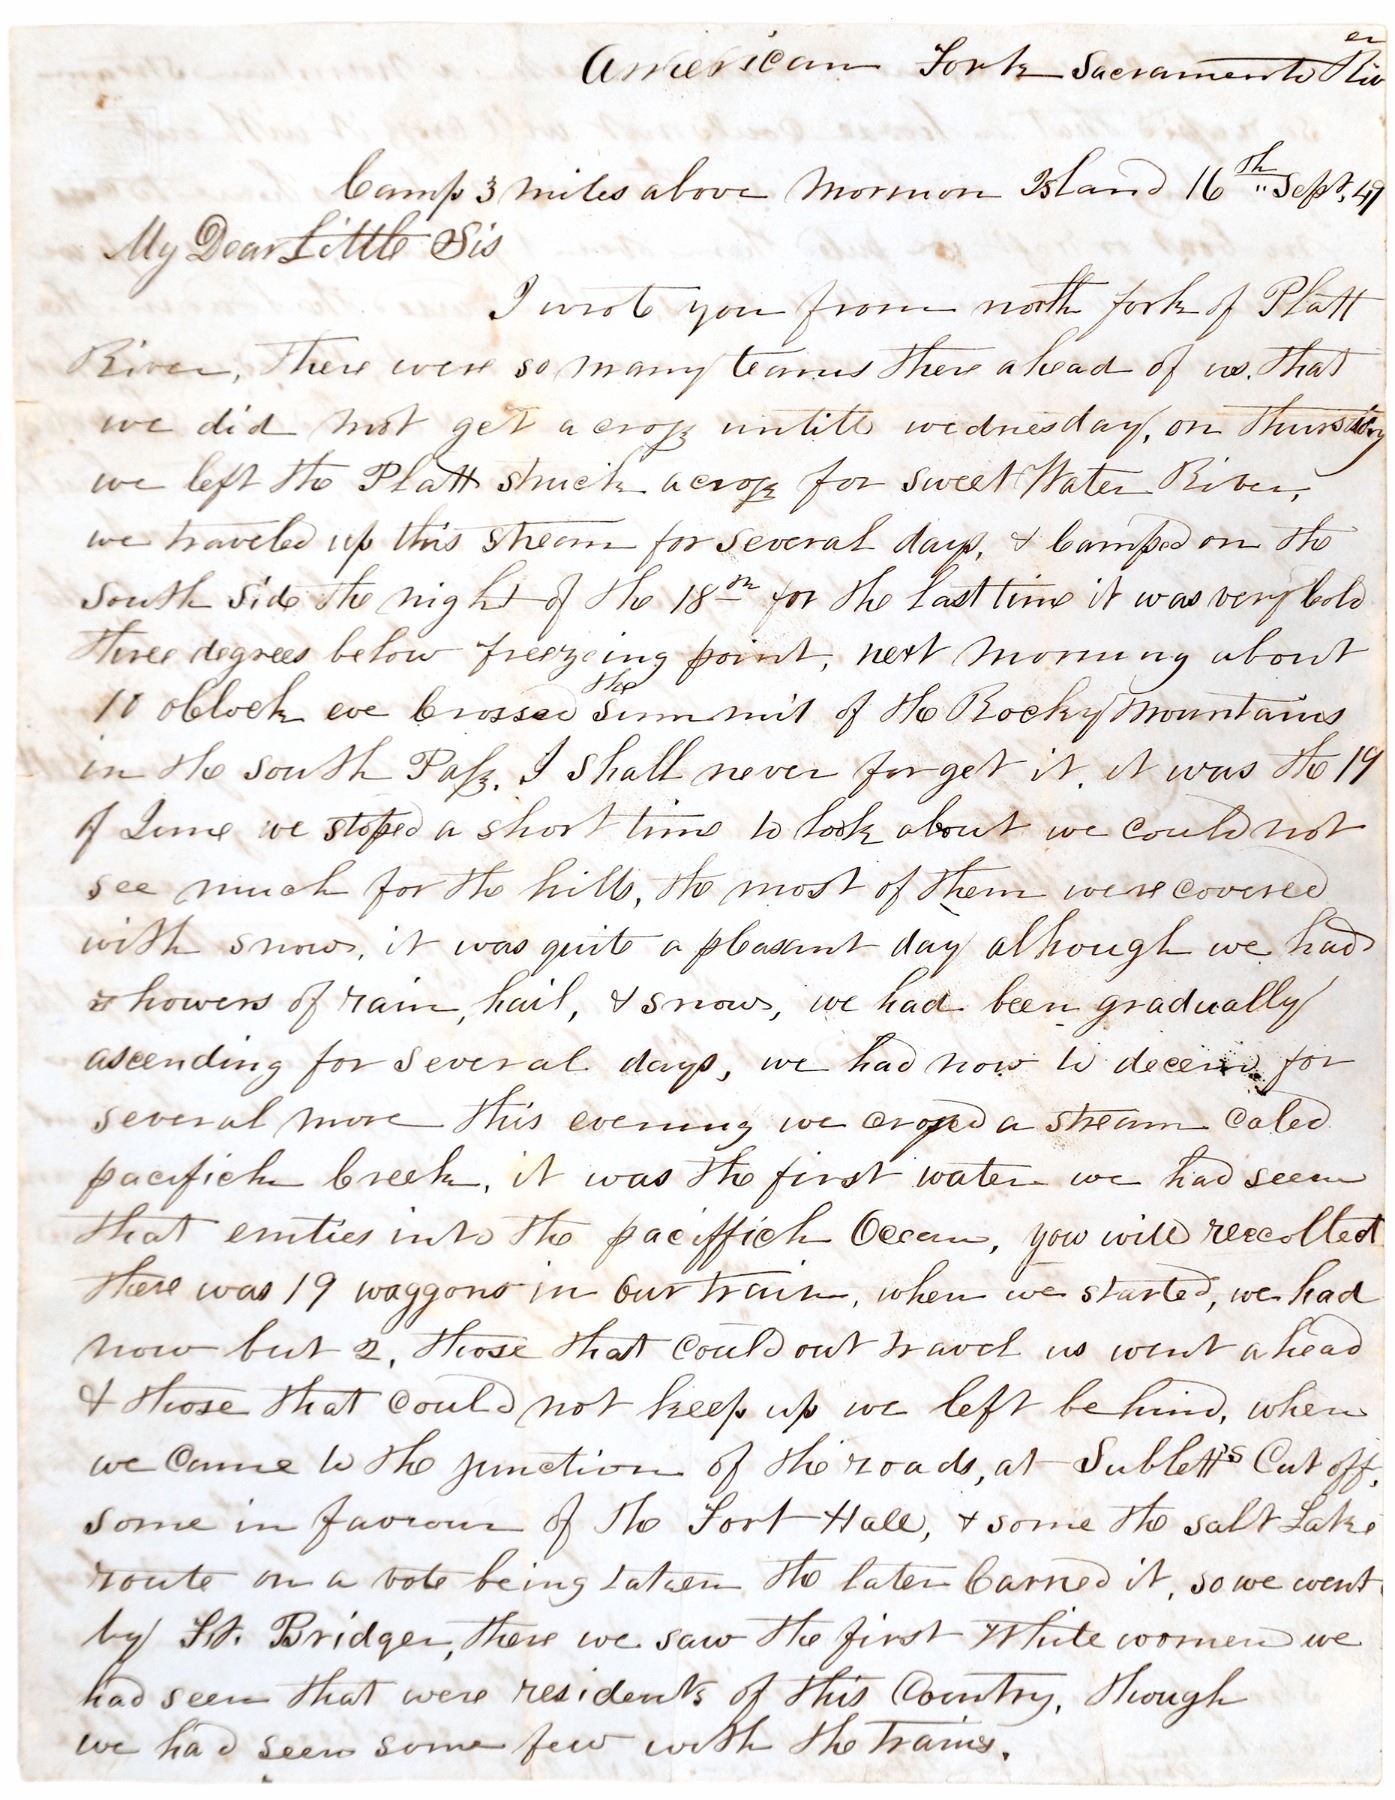 American Fork Sacramento River
Camp 3 miles above Mormon Island 16th Sept, 49
My Dear Little Sis
I wrote you from north fork of Platt
River, There were so many teams there ahead of us. that
we did not get across untill wednesday, on thursday
we left the Platt struck across for Sweet Water River,
we traveled up this stream for several days, & Camped on the
South Side the night of the 18th for the last time it was very Cold
three degrees below freezeing point, next morning about
10 oClock we Crossed the Summit of the Rocky Mountains
in the South Pass. I shall never forget it, it was the 19
of June we stoped a short time to look about we could not
see much for the hills, the most of them were covered
with snow, it was quite a pleasant day although we had
showers of rain, hail, & snow, we had been gradually
ascending for several days, we had now to decend for
several more this evening we crossed a stream caled
pacifick Creek, it was the first water we had seen
that emties into the paciffick Ocean, you will reecollect
there was 19 waggons in Our train, when we started, we had
now but 2, those that could out travel us went ahead
& those that could not keep up we left behind, when
we came to the junction of the roads, at Sublett's Cut off,
some in favour of the Fort Hall, & some the salt Lake
route on a vote being taken the later Carried it, so we went
by Ft. Bridger, there we saw the first White women we
had seen that were residents of this Country, though
we had seen some few with the trains.